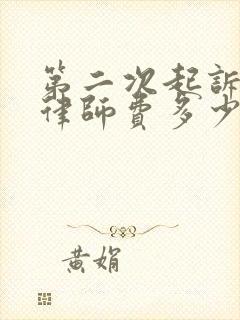 第二次起訴
律師費多少
黄娟